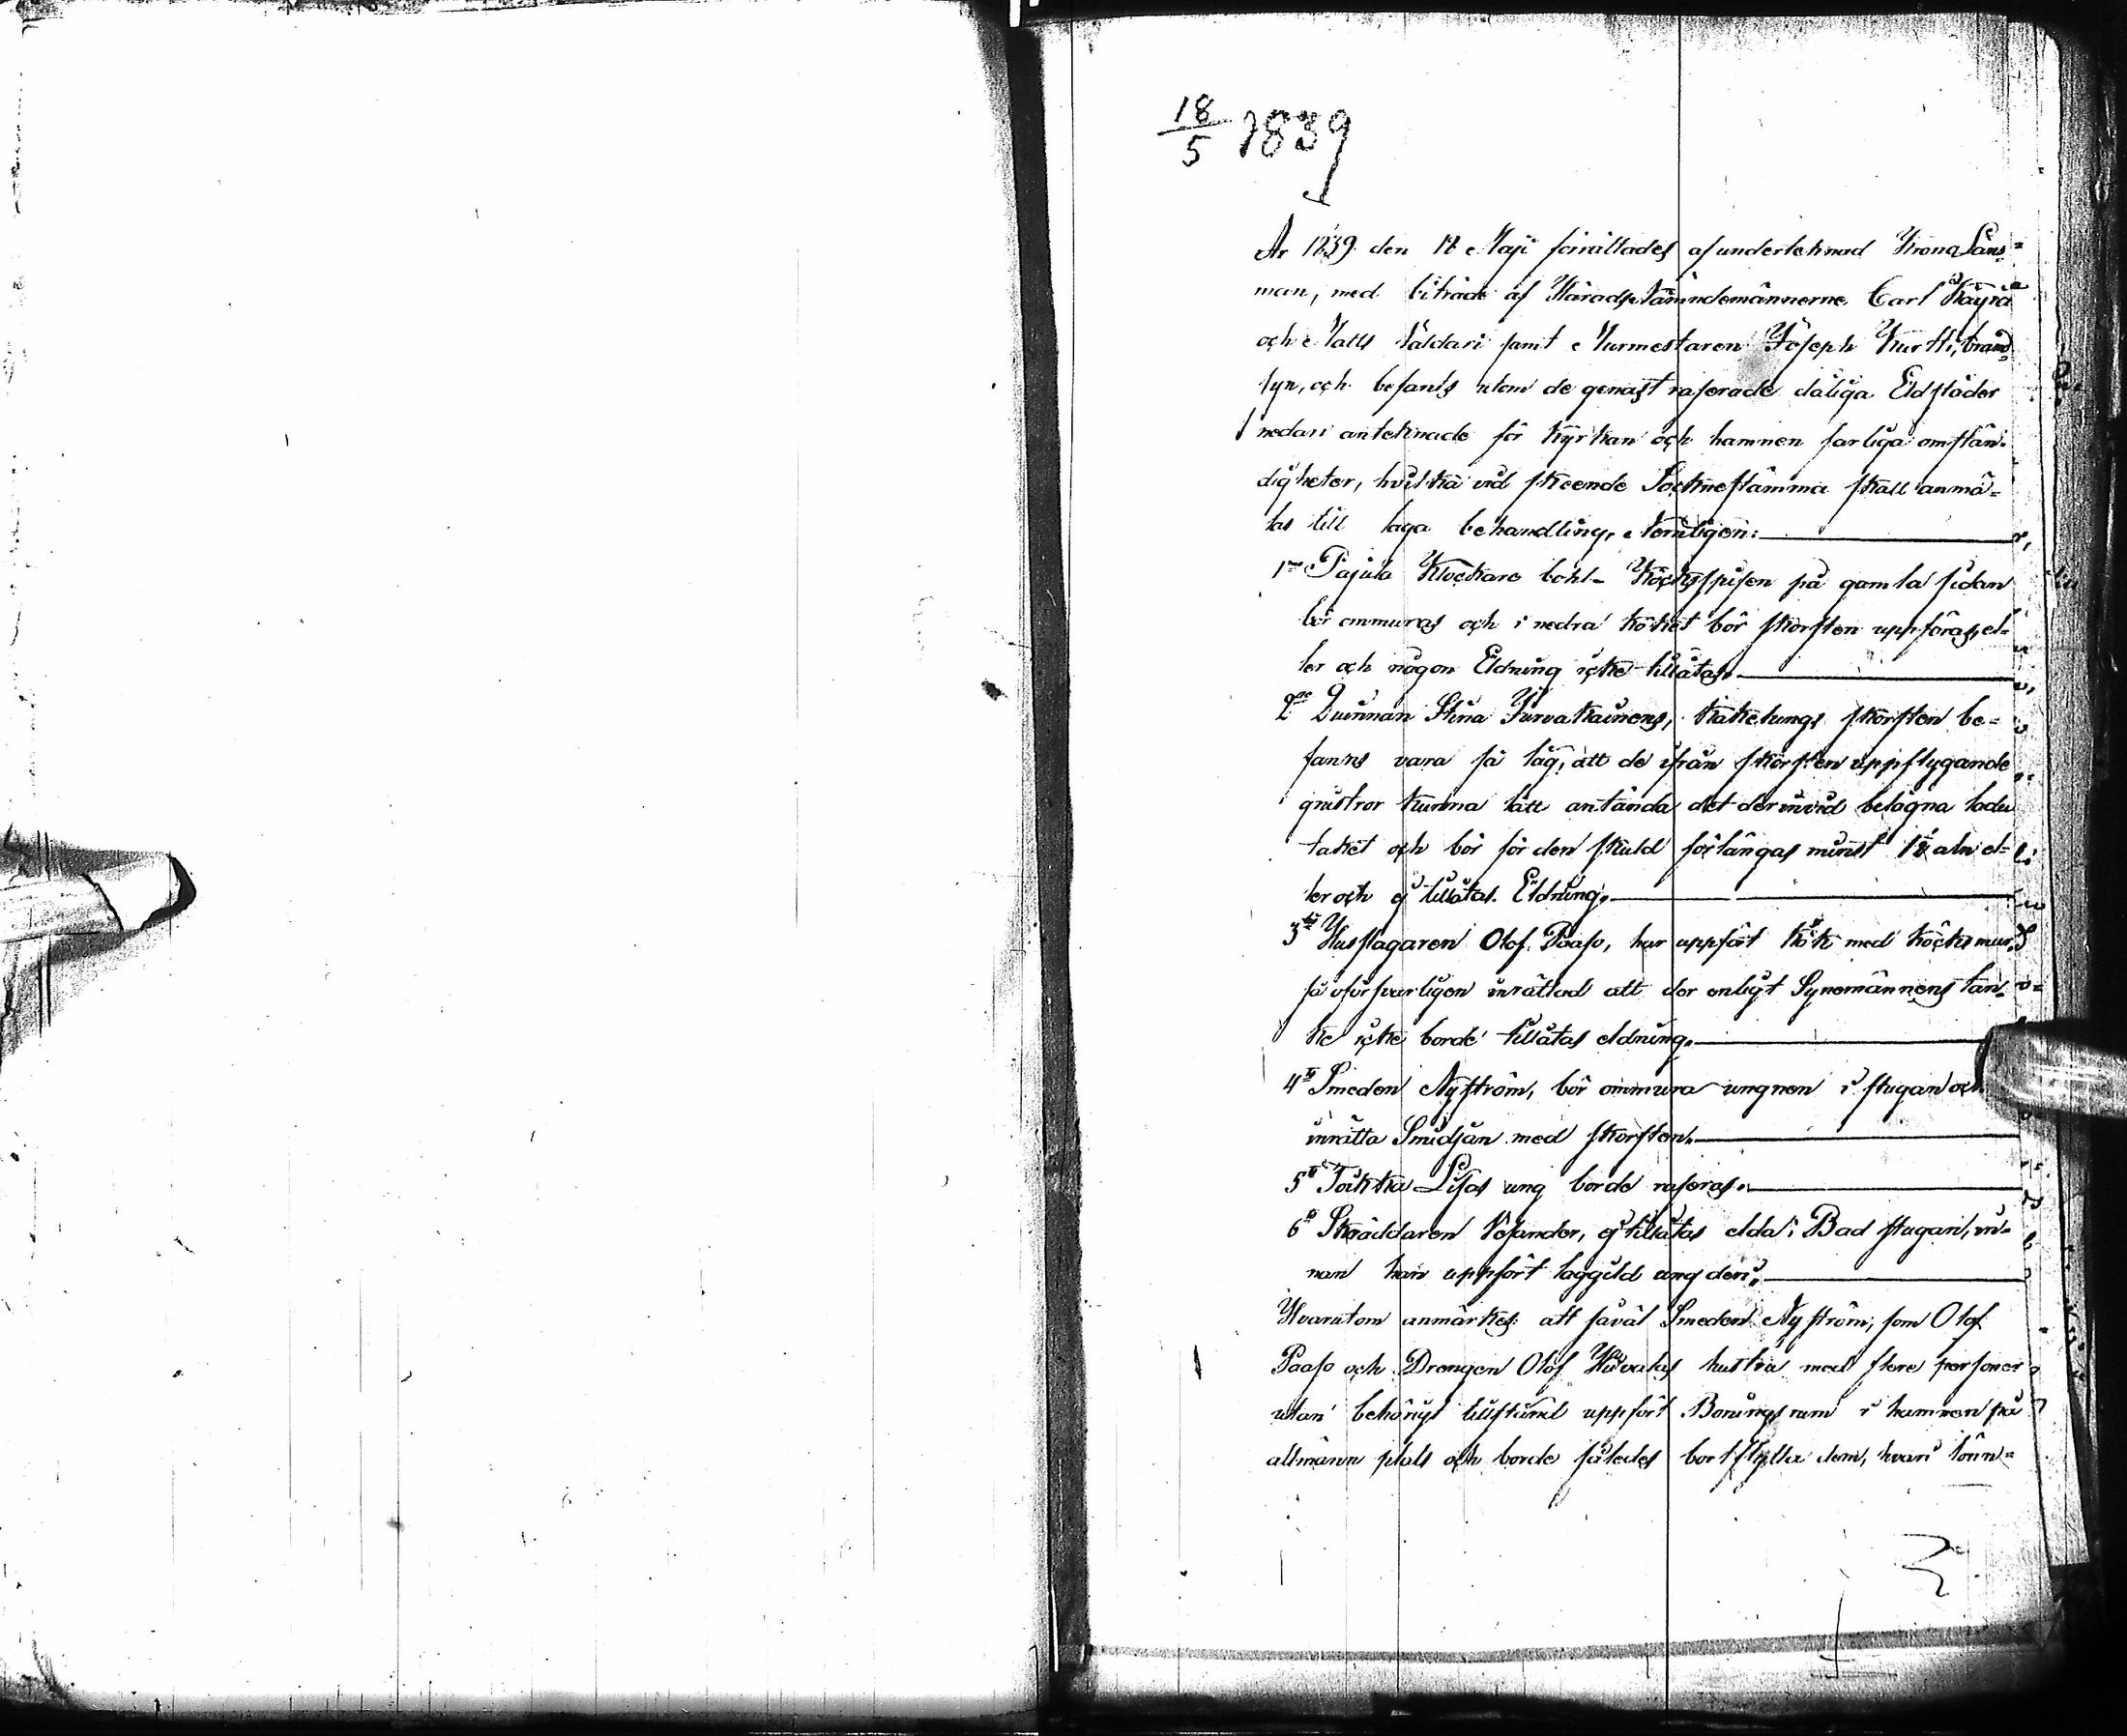 18/5 1839
År 1839 den 18 Maji förrättades af undertecknad Krona Läns-
man, med biträde af Härads Nämndemännerne Carl Käyrä
och Matts Taldari samt Murmestaren Joseph Kurtti, brand
syn, och befants utom de genast raserade dåliga Eldstäder
nedan antecknade för kyrkan och hamnen farliga omstän-
digheter, hvilka vid skeende Sockne stämma skall anmä-
las till laga behandling, Nemligen:
1mo Pajula Klockare bohl- Köcksspisen på gamla sidan
bör ommuras och i nedra köket bör skorsten uppföras, el-
ler och någon Eldning icke tillåtas.
2do Quinnan Stina Jurvakainens, kakelungs skorsten be-
fanns vara så låg, att de ifrån skorsten uppflygande
gnistror kunna lätt antända det derinvid belägna ladu
taket och bör för den skuld förlängas minst 1½ aln el-
ler och ej tillåtas Eldning.
3tio Husflagaren Olof Paaso, har uppfört kök med köcks mur,
så oförsvarligen inrättad att der enligt Synemännens tan-
ke icke borde tillåtas eldning.
4to Smeden Nyström, bör ommura ungnen i stugan och
inrätta Smidjan med skorsten.
5to Toikka Lisas ung borde raseras.
6to Skräddaren Vesander, ej tillåtas elda i Bad stugan, in-
nan han uppfört laggild ung deri.
Hvarutom anmärkes: att såväl Smeden Nyström, som Olof
Paaso och Drengen Olof Huvatas hustru med flere personer
utan behörigt tillstånd uppfört Boningsrum i hamnen på
allmänn plats och borde således bortflytta dem, hvari